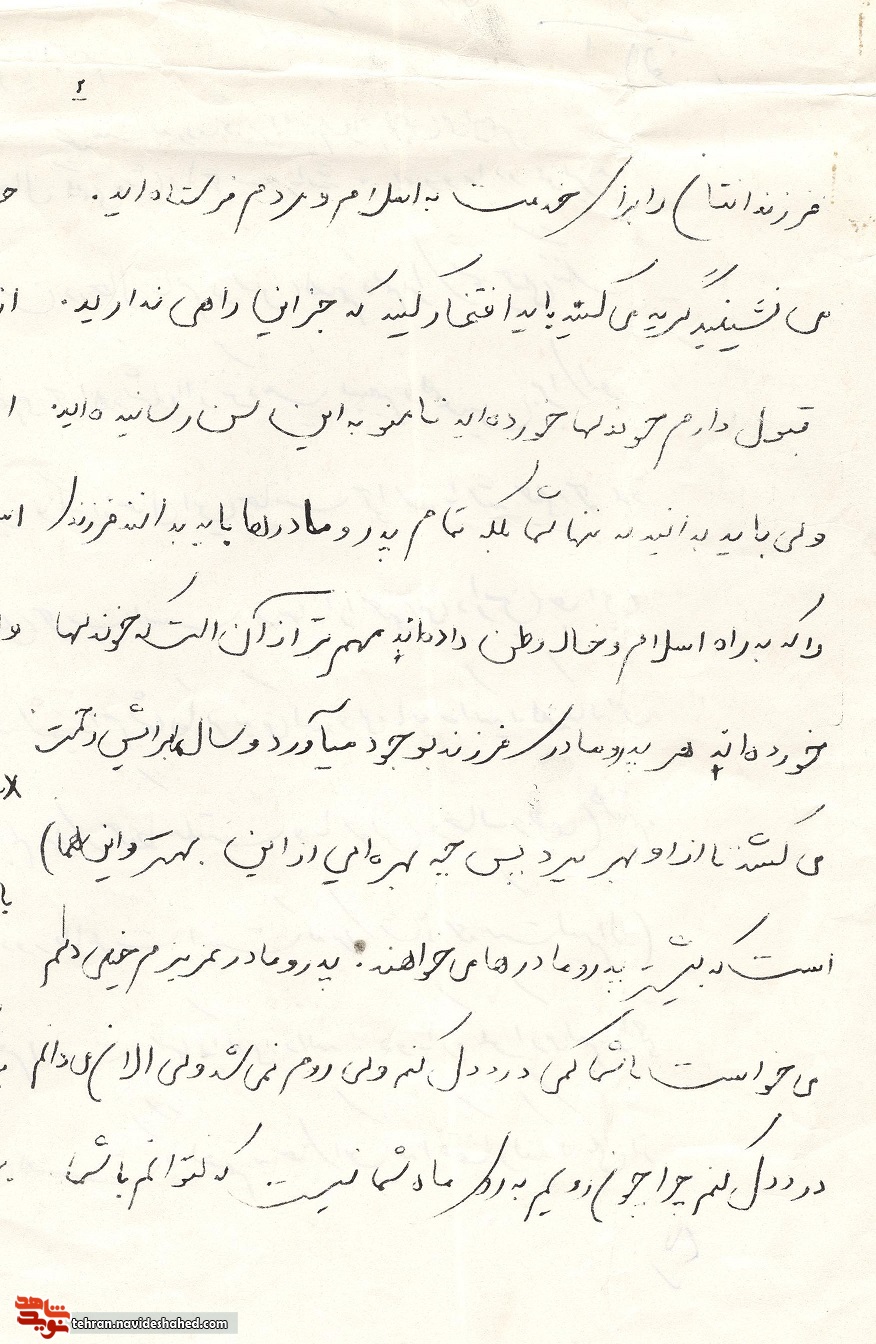 ۲
فرزندانتان را برای خدمت به اسلام و مردم فرستاده‌اید.
می نشینید گریه می کنید باید افتخار کنید که جز این راهی ندارید.
قبول دارم خوندلها خورده‌اید تا منو به این سن رسانیده‌اید.
ولی باید بدانید نه تنها شما بلکه تمام پدر و مادرها باید بدانند فرزندی
را که به راه اسلام و خاک وطن داده‌اند مهم تر از آن است که خوندلها
خورده‌اند هر پدر و مادری فرزند بوجود میآورد و سالها برایش زحمت
می کشد تا از او بهر ببرد پس چه بهره‌ایی از این بهتر و این همان
است که بیشتر پدر و مادرها می خواهند. پدر و مادر عزیزم خیلی دلم
می خواست با شما کمی درد دل کنم ولی روم نمی شد ولی الان می دانم
درد دل کنم چرا چون رویم به روی ماه شما نیست که نتوانم با شما
شاهد
نوید
tehran.navideshahed.com